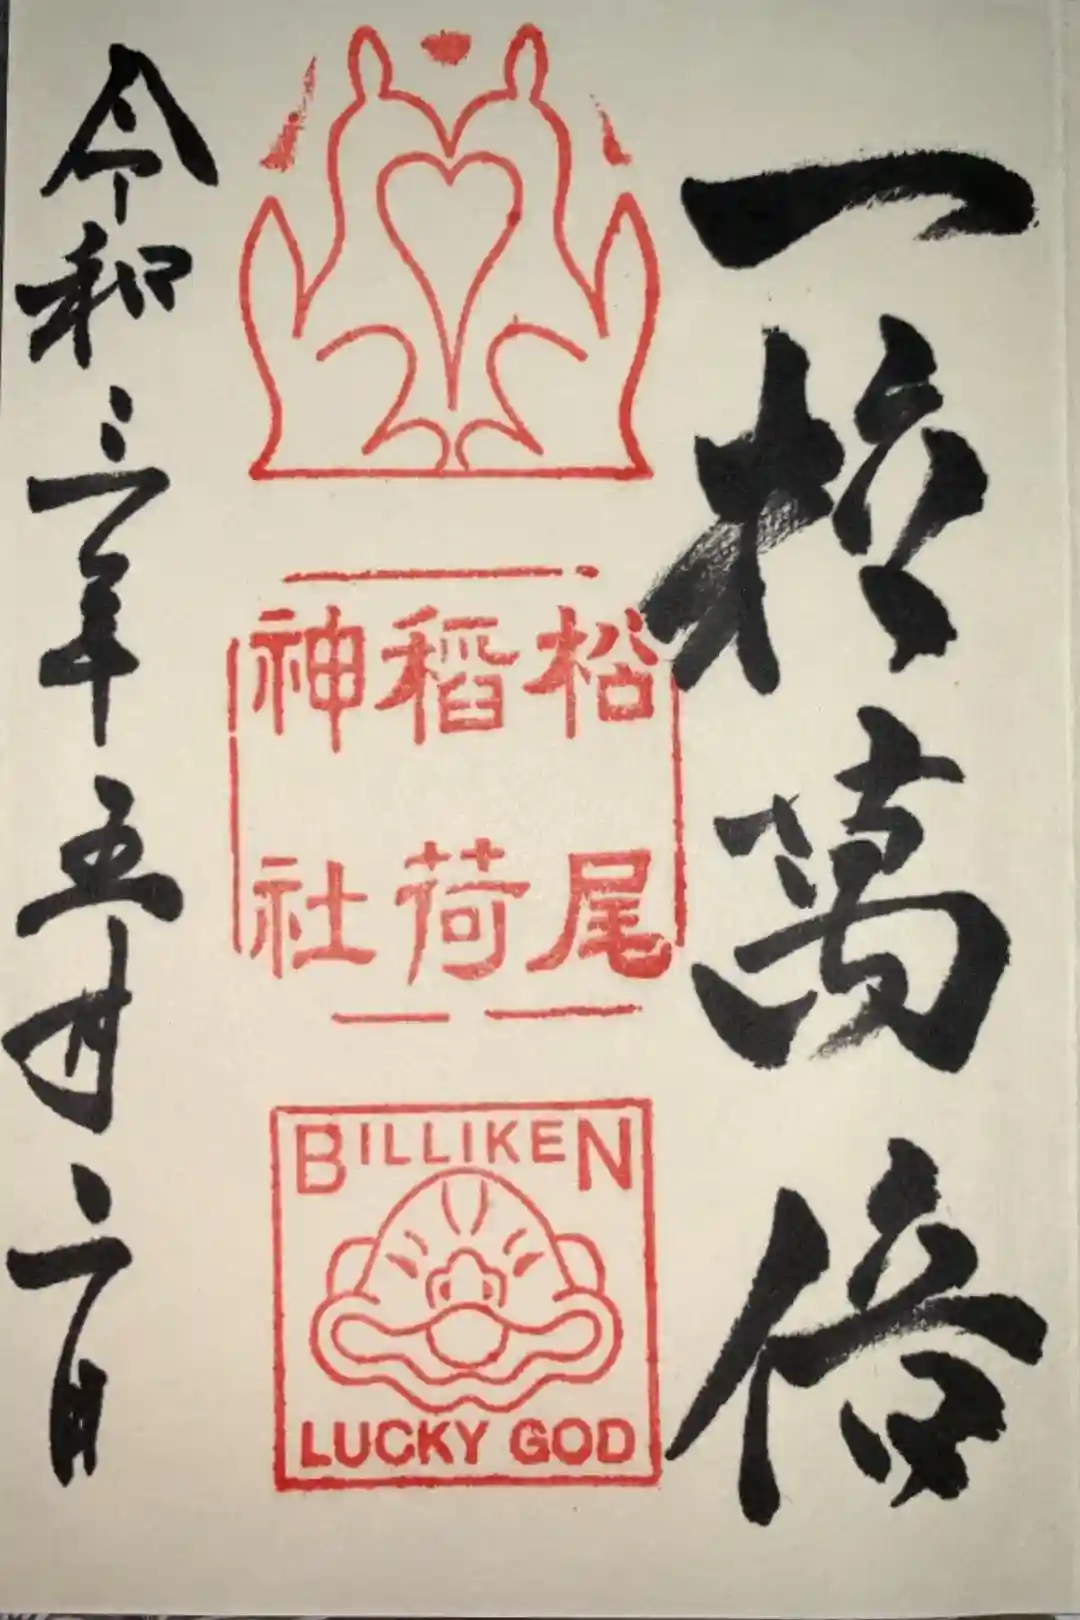 一粒萬倍
松尾
稲荷
神社
BILLIKEN
LUCKY GOD
令和三年五月二日